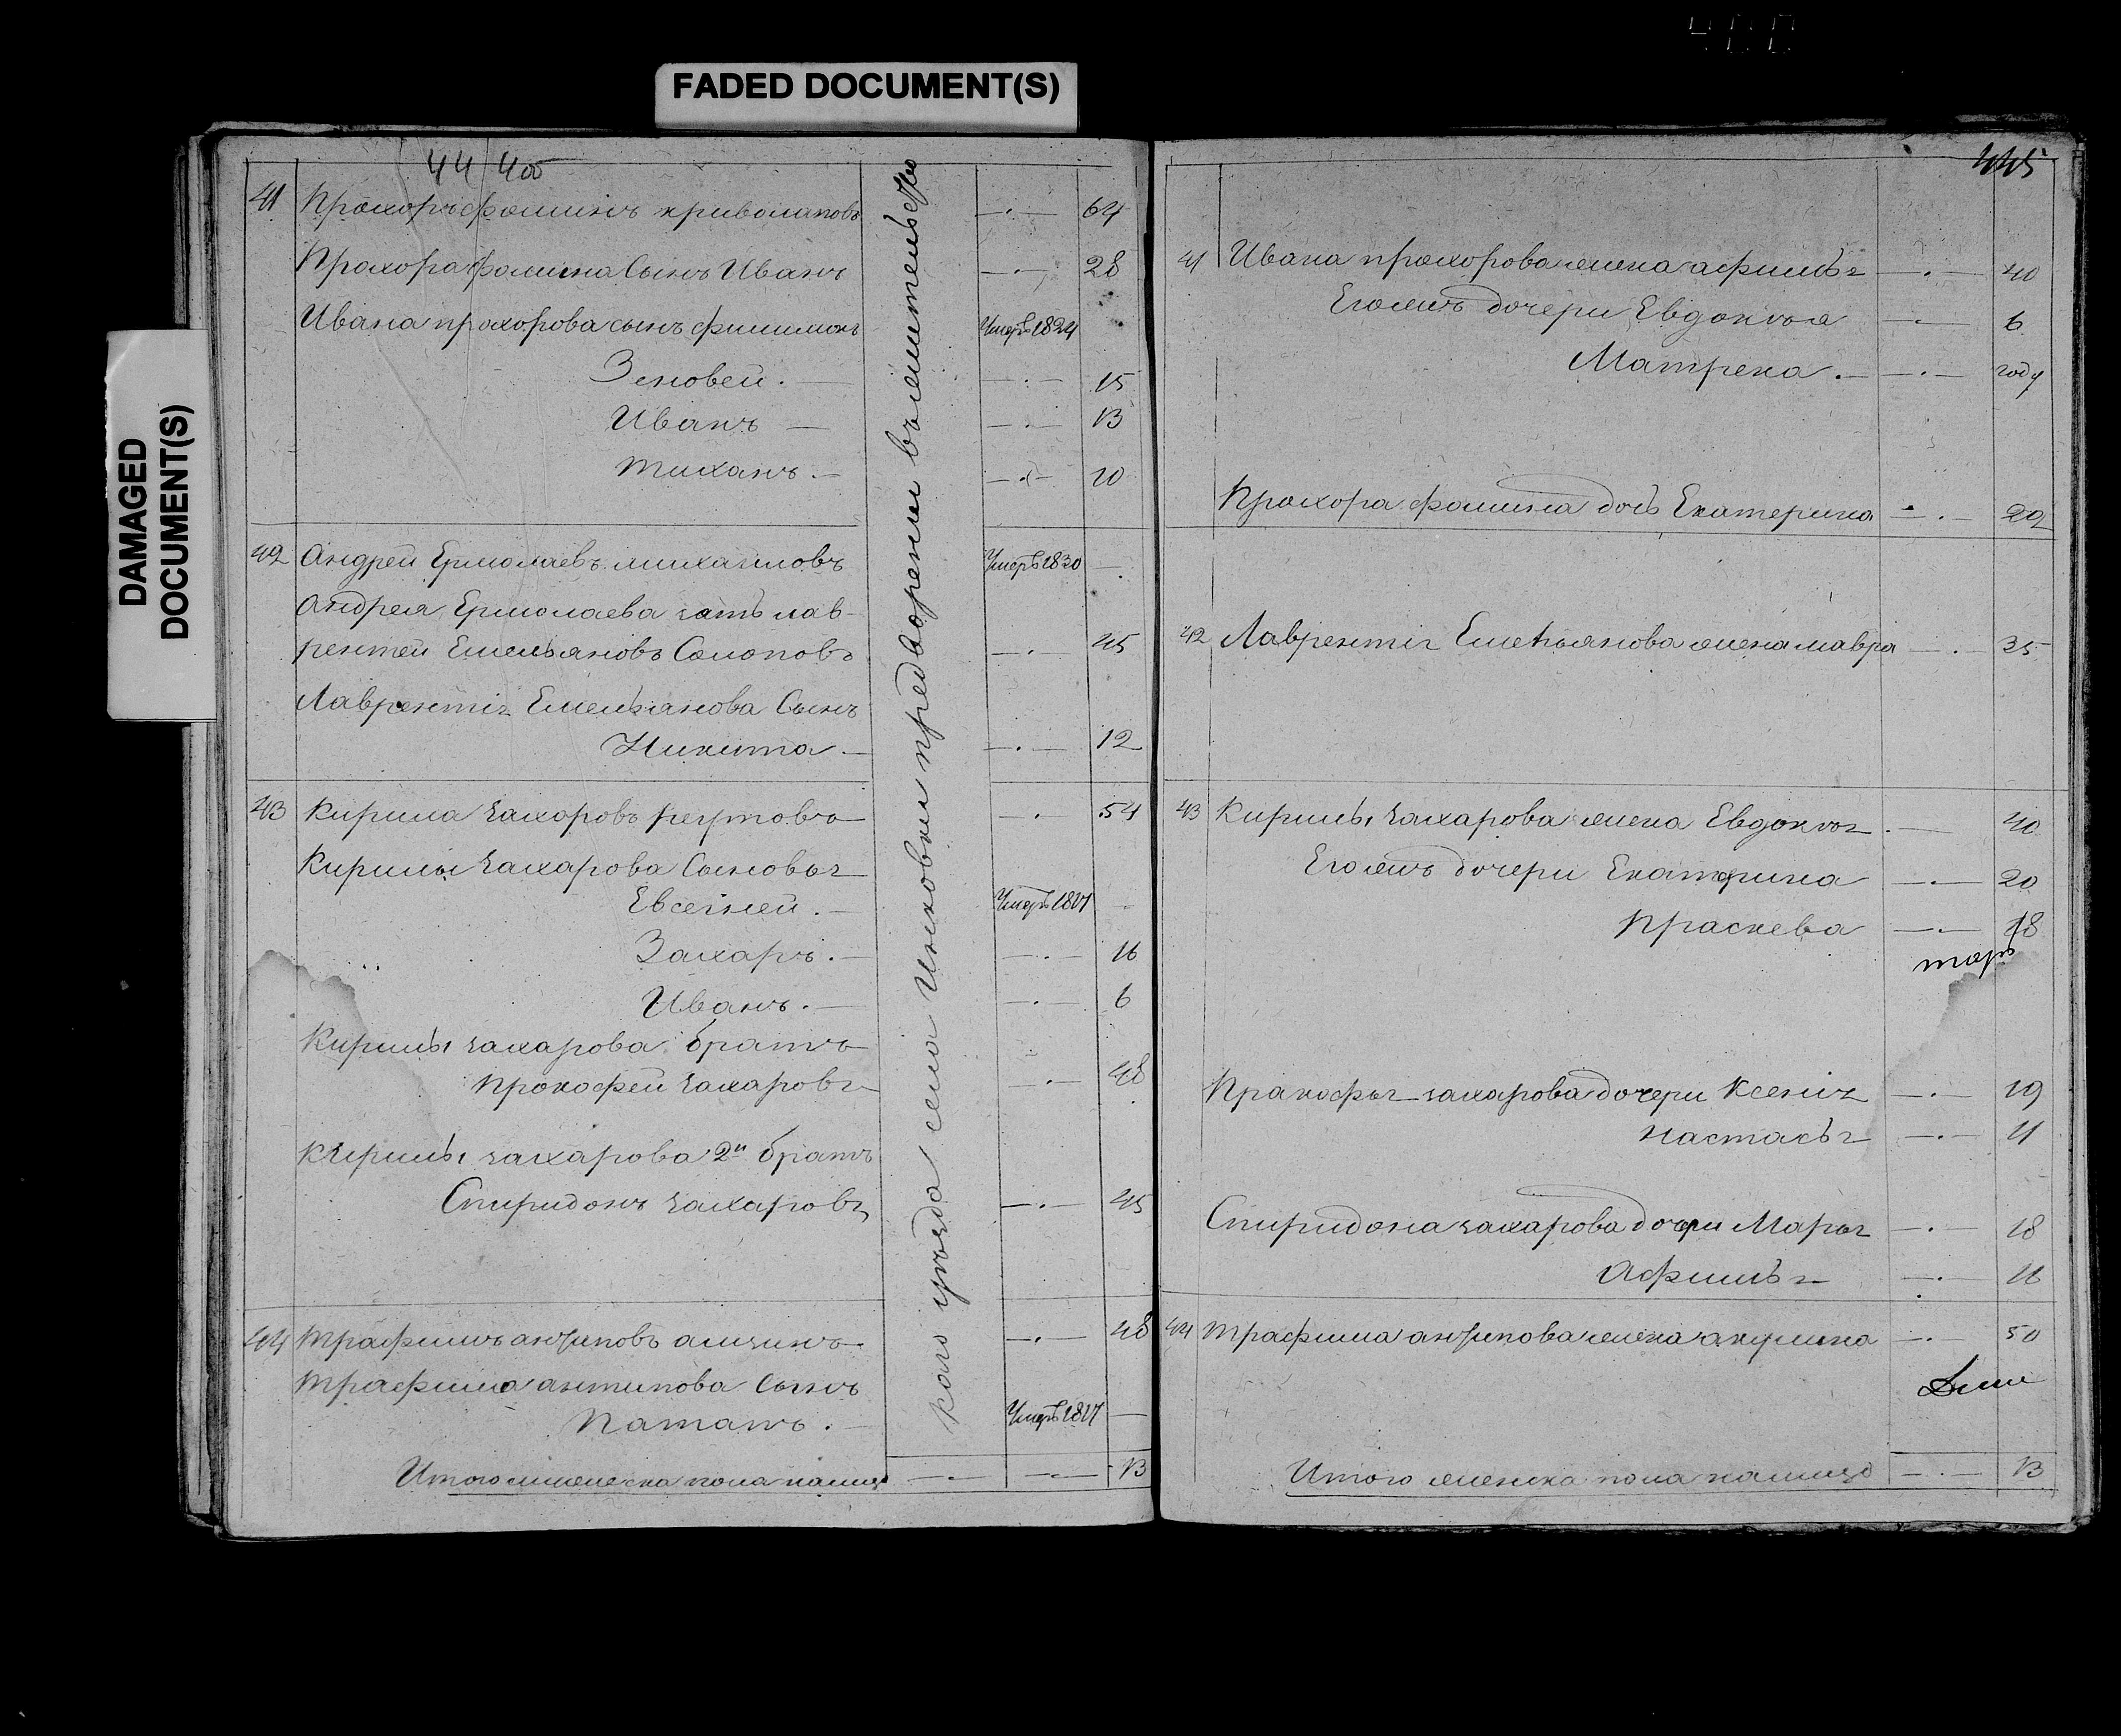 FADED DOCUMENT(S)
DAMAGED
DOCUMENT(S)
400
44 400
41 Прохоръ фоминъ криволаповъ 64
Прохора фомина Сынъ Иванъ 28
Ивана прохорова сынъ филимонъ Умеръ 1824
Зеновей. 15
Иванъ 13
тиханъ. 10
42 Андрей Ермолаевъ михаиловъ Умеръ 1830
Андрея Ермолаева зать лав-
рентей Емельяновъ Солоповъ 45
Лаврентія Емельянова Сынъ
Никита 12
43 Кирила захаровъ реутовъ 54
Кирилы захарова Сыновья
Евсегней. Умеръ 1827
Захаръ. 16
Иванъ. 6
Кирилы захарова братъ
прокофей захаровъ 48
Кирилы захарова 2й братъ
Спиридонъ захаровъ 45
44 трафимъ антиповъ
48
трафима антипова Сынъ
Патапъ. Умеръ 1827
Итого мужеска пола налицо 13
каго уезда села Инковки предворении въ
445
41 Ивана прохорова жена афимья 40
Его жъ дочери Евдокия 6
Матрена. году
Прохора фомина дочь Екатерина 22
42 Лаврентия Емельянова жена мавра 35
43 Кирилы захарова жена Евдокия 40
Его жъ дочери Екатерина 20
Праскева 18
Пракофья захарова дочери Ксения 19
настасья 11
Спиридона захарова дочери Марья 18
Афимья 16
44 трафима антипова жена акулина 50
Итого женска пола налицо 13